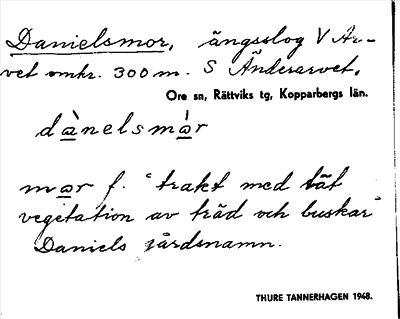 Danielsmor, ängsslog V Ar-
vet omkr. 300 m. S Änderarvet.
Ore sn, Rättviks tg, Kopparbergs län.
dànelsmàr
mor f. "trakt med tät
vegetation av träd och buskar"
Daniels gårdsnamn.
THURE TANNERHAGEN 1948.